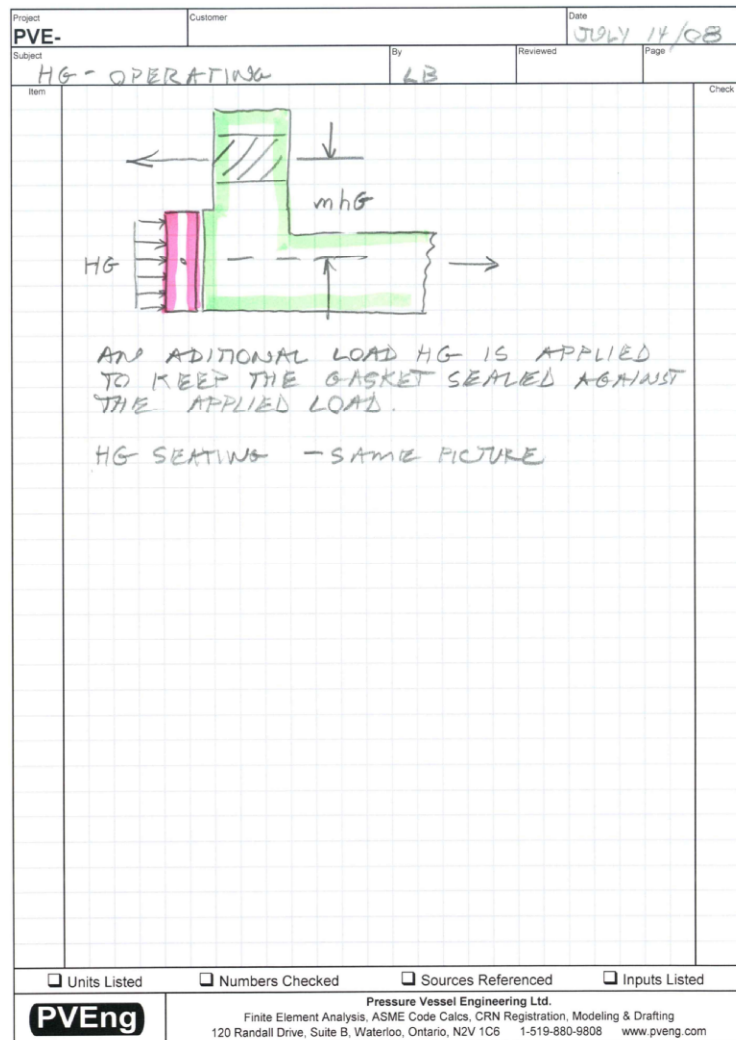 Project
PVE-
Customer
Date
JULY 14/08
Subject
HG - OPERATING
By
LB
Reviewed
Page
Item
Check
mhG
HG
AN ADITIONAL LOAD HG IS APPLIED
TO KEEP THE GASKET SEALED AGAINST
THE APPLIED LOAD.
HG SEATING - SAME PICTURE
Units Listed
Numbers Checked
Sources Referenced
Inputs Listed
PVEng
Pressure Vessel Engineering Ltd.
Finite Element Analysis, ASME Code Calcs, CRN Registration, Modeling & Drafting
120 Randall Drive, Suite B, Waterloo, Ontario, N2V 1C6 1-519-880-9808 www.pveng.com